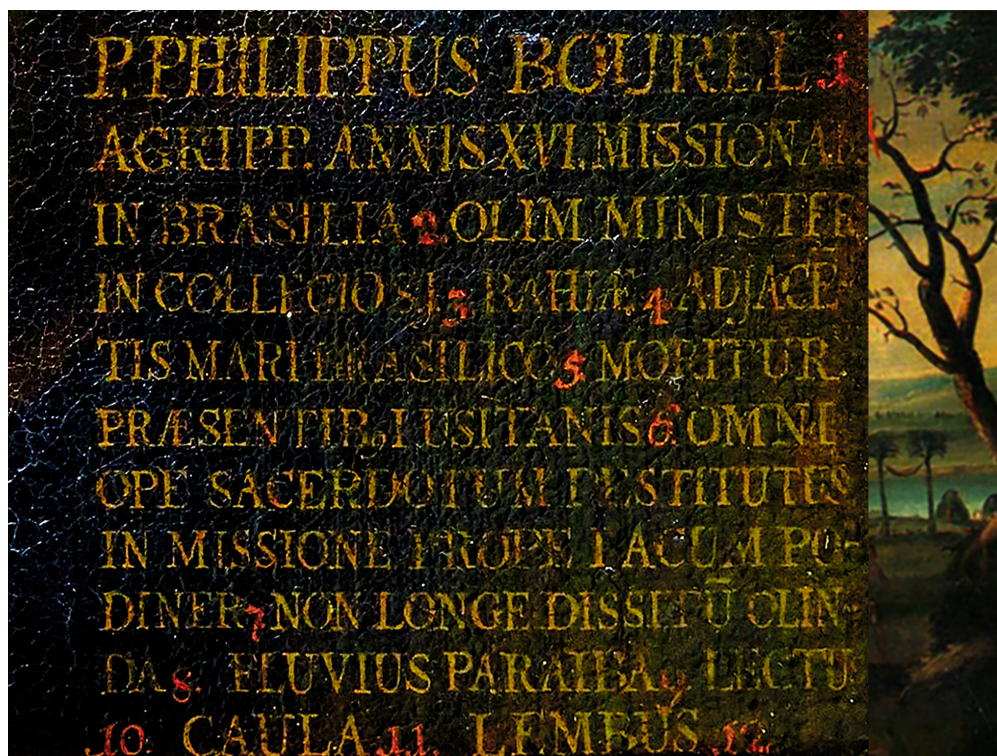 P. PHILIPPUS BOUREL 1
AGRIPP. ANNIS XVI. MISSIONAR
IN BRASILIA 2. OLIM MINISTER
IN COLLEGIO S.J. 3. BAHIÆ 4 ADJACĒ
TIS MARI BRASILICO 5 MORITUR
PRÆSENTIB9 LUSITANIS 6. OMNI
OPE SACERDOTUM DESTITUTUS
IN MISSIONE PROPE LACUM PO-
DINER 7 NON LONGE DISSITŪ OLIN-
DA 8. FLUVIUS PARAIBA 9 LECTU
10. CAULA 11. LEMBUS 12.